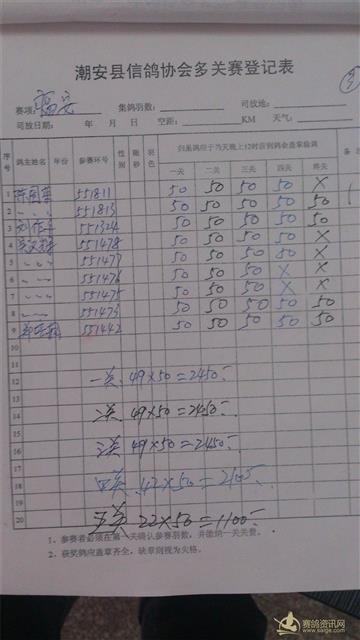 潮安县信鸽协会多关赛登记表
②
赛项: 集鸽羽数: 司放地:
司放日期: 年 月 日 空距: KM 天气:
序号 鸽主姓名 年份 参赛环号 性别 眼砂 羽色 归巢鸽应于当天晚上12时前到鸽会盖章验鸽
一关 二关 三关 四关 终关
1 551811 50 50 50 50 X
2 551813 50 50 50 50 50
3 551324 50 50 50 50 50
4 551478 50 50 50 50 X
5 551477 50 50 50 50 X
6 551476 50 50 50 X X
7 551475 50 50 50 X X
8 551473 50 50 50 50 50
9 551442 50 50 50 50 50
10
11
12 一关 49×50=2450
13
14 二关 49×50=2450
15
16 三关 49×50=2450
17
18 四关 42×50=2100
19
20 五关 22×50=1100
1、参赛者必须在第一关确认参赛羽数,并缴纳一关关费。
2、获奖鸽应盖章齐全,缺章则视为失格。
赛鸽资讯网
www.saige.com